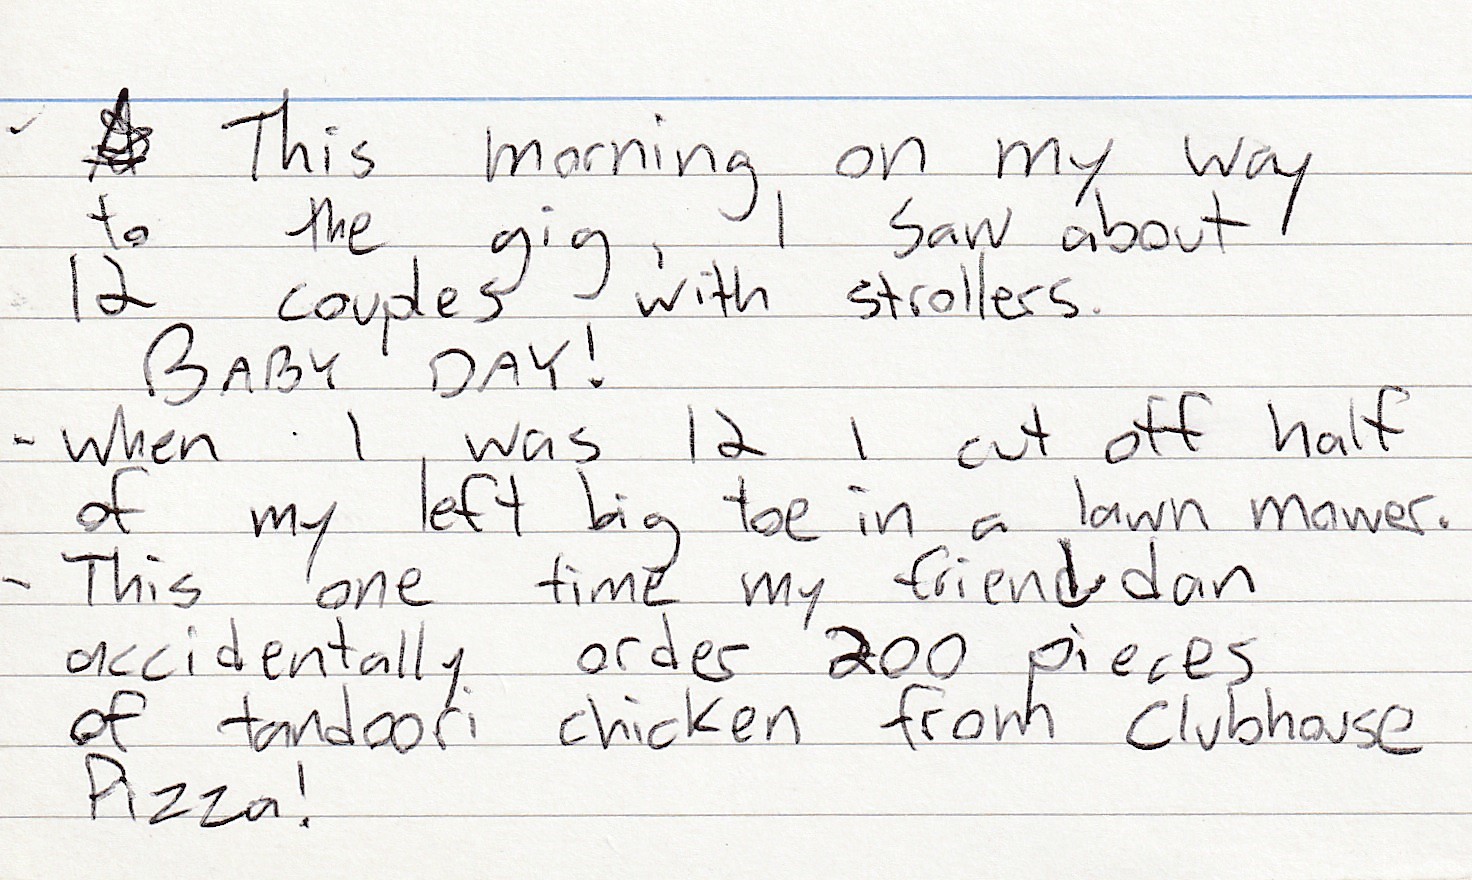 This morning on my way
to the gig, I saw about
12 couples with strollers.
BABY DAY!
- When I was 12 I cut off half
of my left big toe in a lawn mower.
- This one time my friend dan
accidentally order 200 pieces
of tandoori chicken from Clubhouse
Pizza!